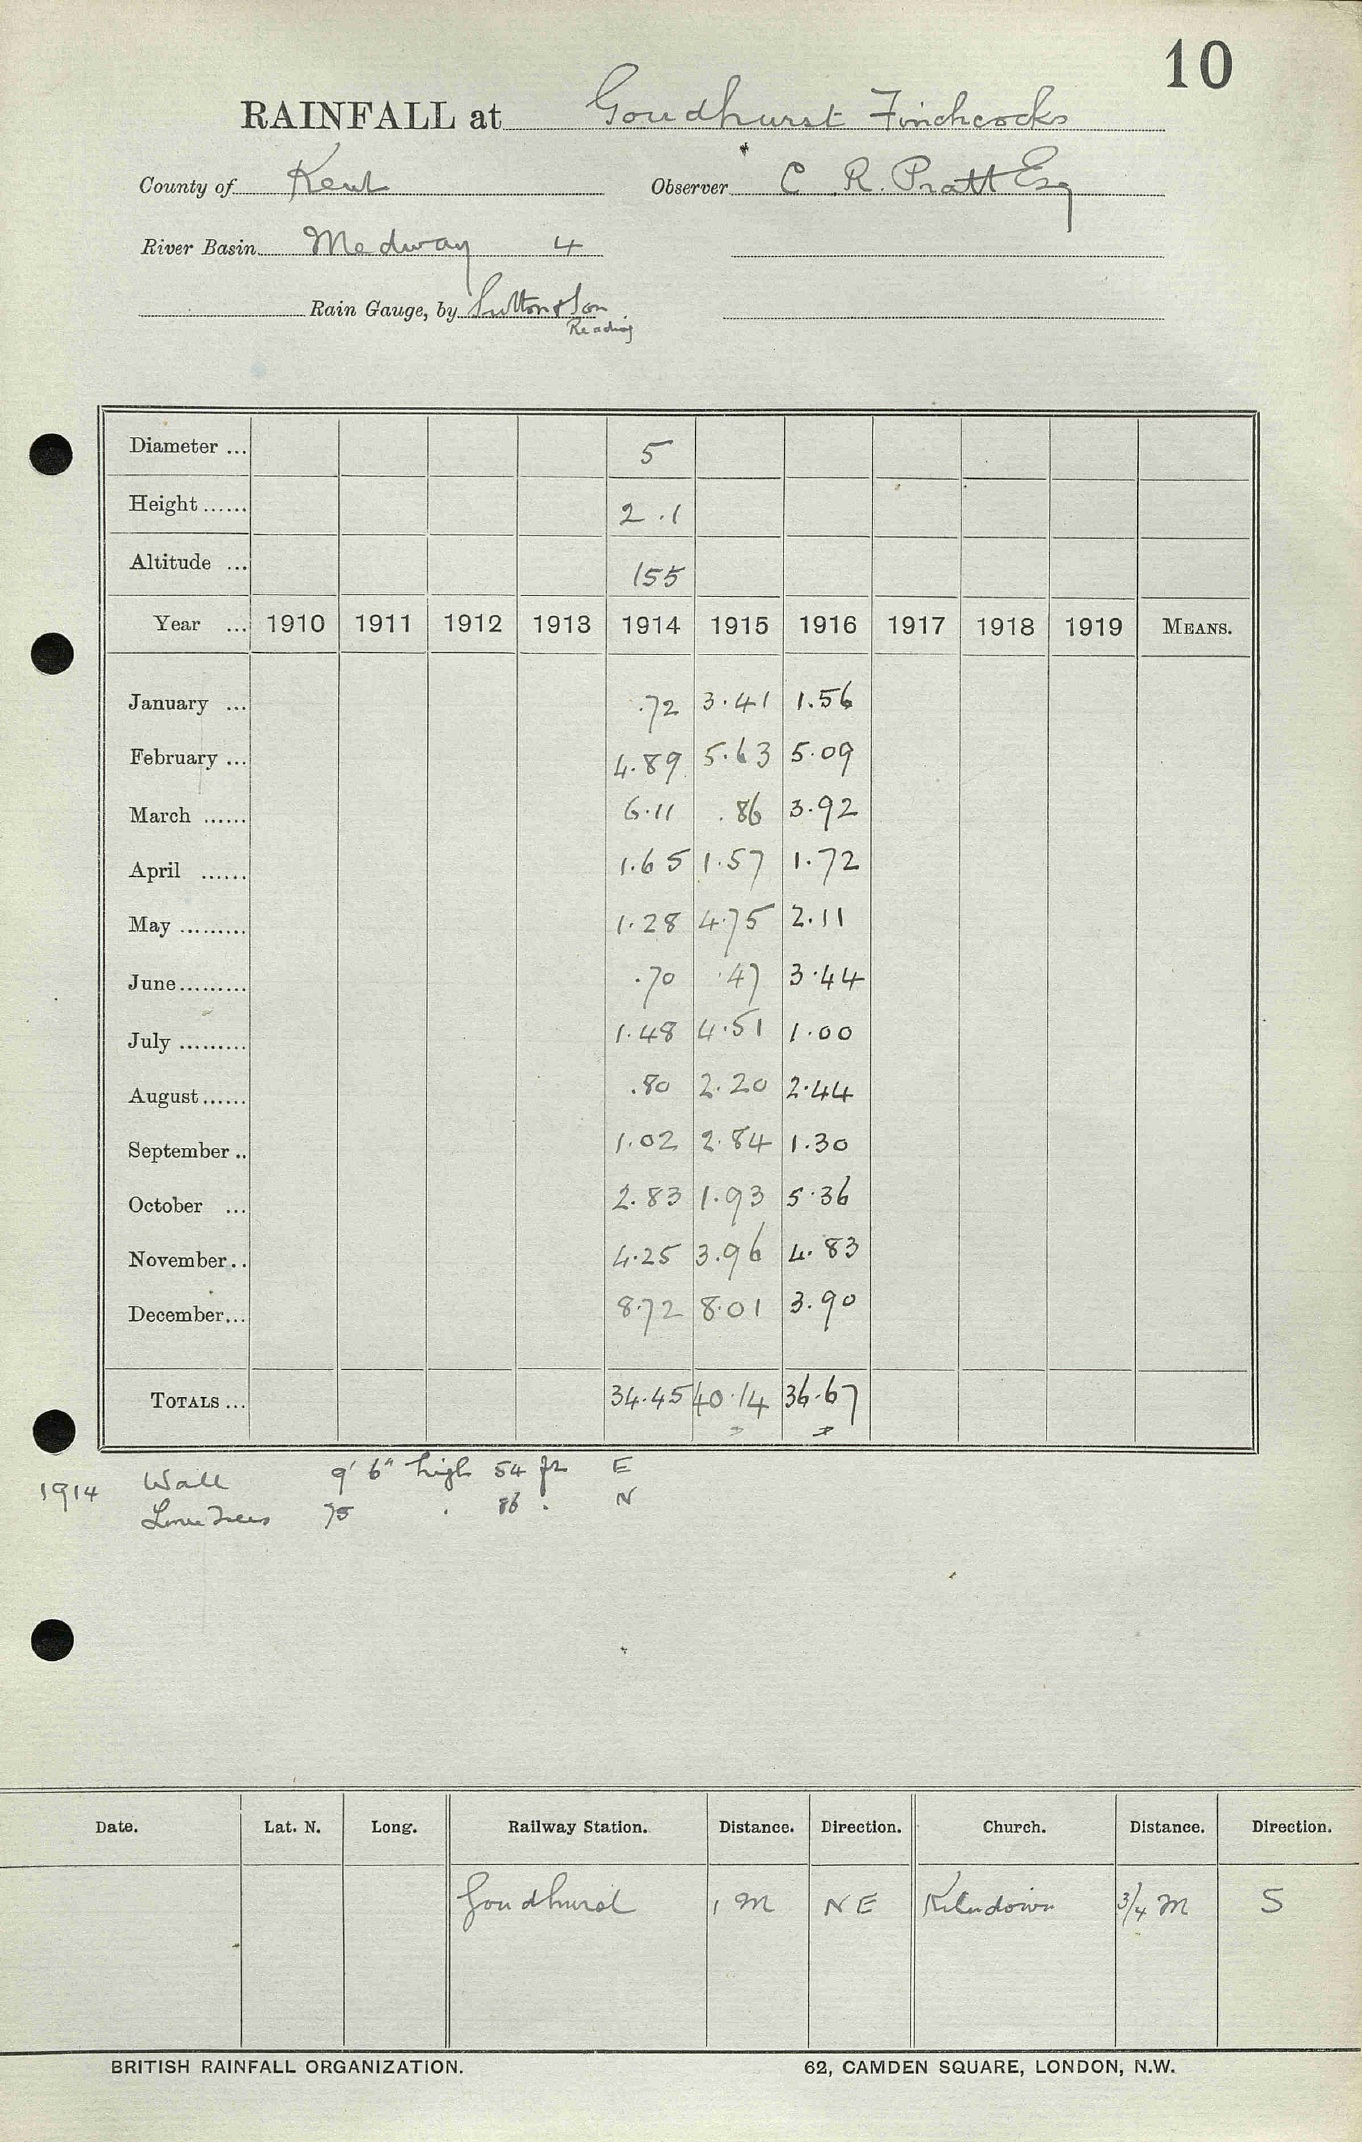 10
RAINFALL at Goudhurst Finchcocks
County of Kent Observer C R. Pratt Esq
River Basin Medway 4
Rain Gauge, by Sutton & Son
Reading
Diameter ... 5
Height ...... 2.1
Altitude ... 155
Year ... 1910 1911 1912 1913 1914 1915 1916 1917 1918 1919 MEANS.
January ... .72 3.41 1.56
February ... 4.89 5.63 5.09
March ...... 6.11 .86 3.92
April ...... 1.65 1.57 1.72
May ......... 1.28 4.75 2.11
June ......... .70 .47 3.44
July ......... 1.48 4.51 1.00
August ...... .80 2.20 2.44
September .. 1.02 2.84 1.30
October ... 2.83 1.93 5.36
November .. 4.25 3.96 4.83
December ... 8.72 8.01 3.90
TOTALS ... 34.45 40.14 36.67
1914 Wall 9' 6" high 54 ft E
Lime Trees 75 . 86 . N
Date. Lat. N. Long. Railway Station. Distance. Direction. Church. Distance. Direction.
Goudhurst 1 M NE Kilndown 3/4 M S
BRITISH RAINFALL ORGANIZATION. 62, CAMDEN SQUARE, LONDON, N.W.